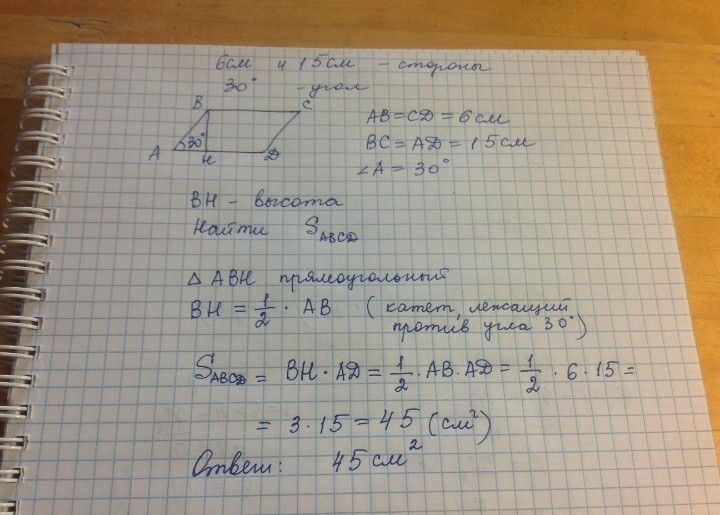 6см и 15см - стороны
30° - угол
B C
A 30° H D
AB=CD=6см
BC=AD=15см
∠A=30°
BH - высота
Найти S_ABCD
△ ABH прямоугольный
BH = 1/2 · AB (катет, лежащий
против угла 30°)
S_ABCD = BH · AD = 1/2 · AB · AD = 1/2 · 6 · 15 =
= 3 · 15 = 45 (см²)
Ответ: 45 см²